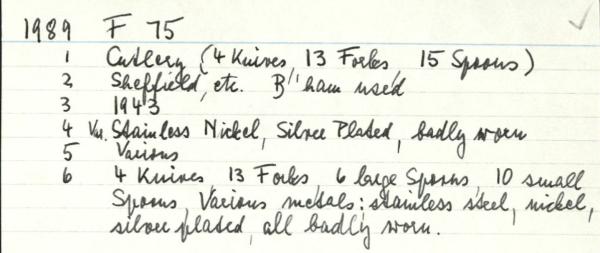 1989 F 75
1 Cutlery (4 Knives, 13 Forks, 15 Spoons)
2 Sheffield, etc. B'ham used
3 1943
4 Var. Stainless Nickel, Silver Plated, badly worn
5 Various
6 4 Knives 13 Forks, 6 large Spoons, 10 small
Spoons, Various metals: stainless steel, nickel,
silver plated, all badly worn.